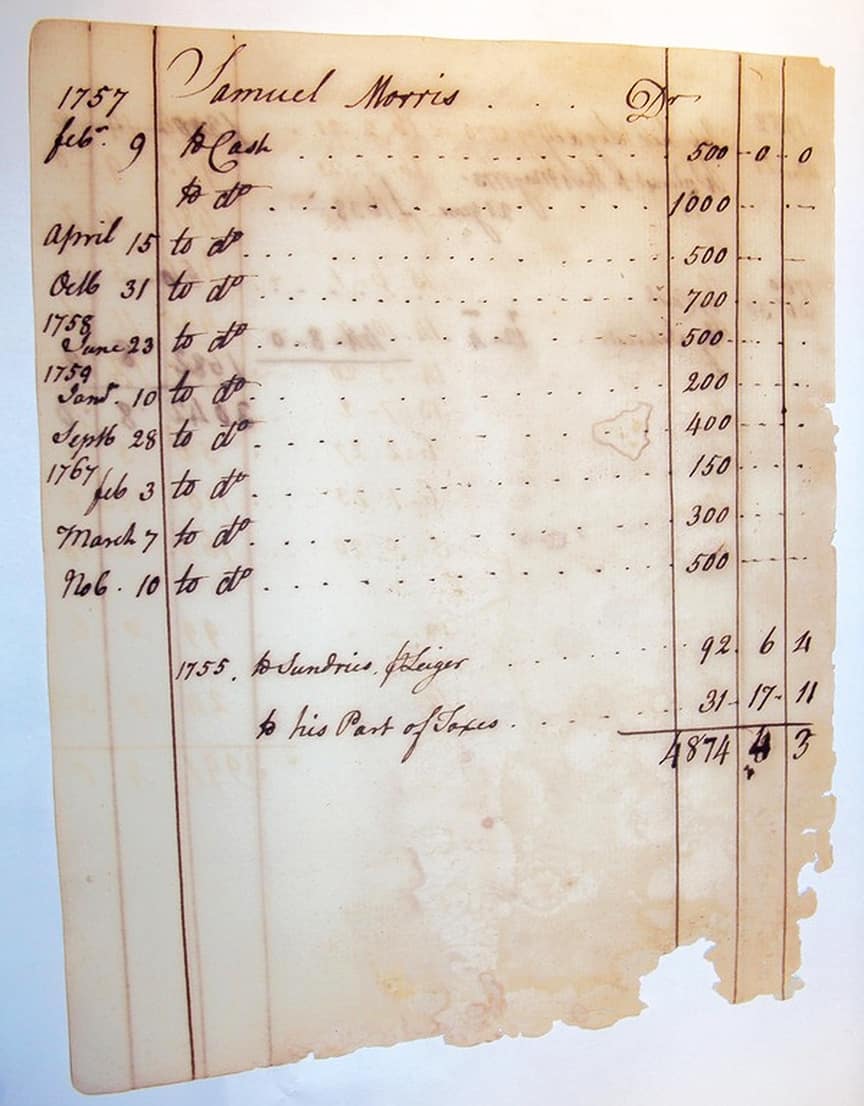 1757 Samuel Morris . . . Dr
febr. 9 to Cash 500 - 0 - 0
to do 1000
April 15 to do 500
Octb 31 to do 700
1758
June 23 to do 500
1759
Janr. 10 to do 200
Septb 28 to do 400
1767
feb 3 to do 150
March 7 to do 300
Nob. 10 to do 500
1755. to Sundries, Leiger 92. 6 4
to his Part of Taxes 31 - 17 - 11
4874 4 3